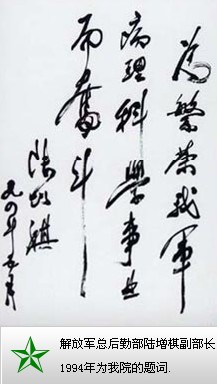 為繁榮我軍
病理科學事业
而奮斗
陆增祺
九四年五月
解放军总后勤部陆增棋副部长
1994年为我院的题词.